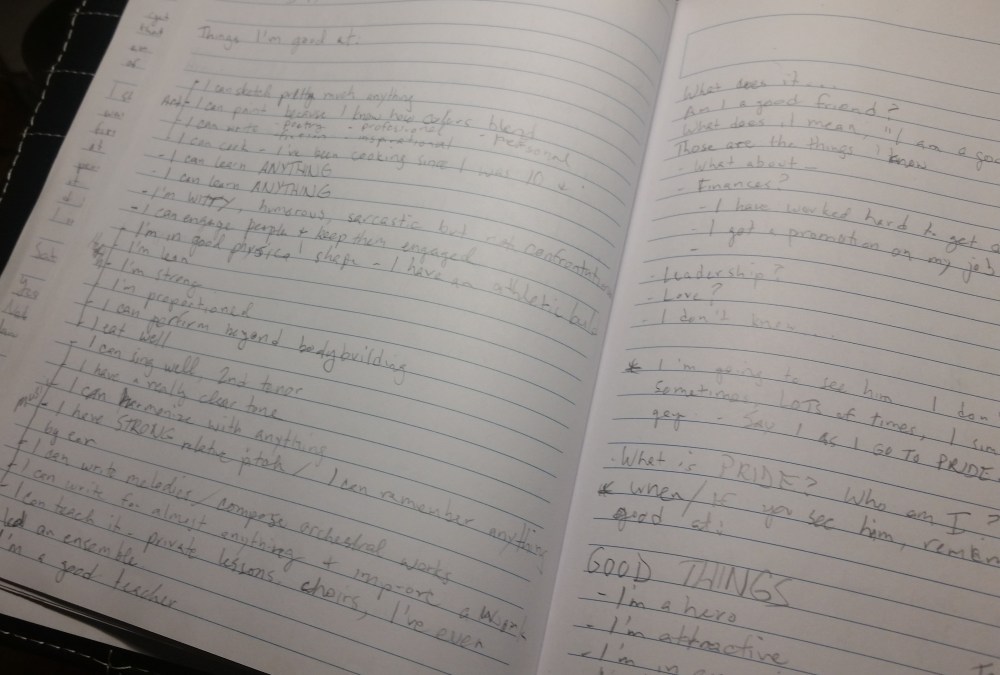 Things I'm good at.
- I can sketch pretty much anything
Art - I can paint because I know how colors blend
poetry - professional - Personal
- I can write fiction inspirational
- I can cook - I've been cooking since I was 10
- I can learn ANYTHING
- I can learn ANYTHING
- I'm WITTY, humorous, sarcastic but not confrontation
- I can engage people & keep them engaged
- I'm in good physical shape - I have an athletic build
- I'm lean
- I'm strong
- I'm proportioned
- I can perform beyond bodybuilding
- I eat well
- I can sing well, 2nd tenor
- I have a really clear tone
- I can harmonize with anything
- I have STRONG relative pitch / I can remember anything
by ear
- I can write melodies / compose orchestral works
- I can write for almost anything +
- I can teach it - private lessons, choirs, I've even
led an ensemble.
I'm a good teacher
What does it
Am I a good friend?
What does I mean, "I am a goo
Those are the things I know
- What about -
- Finances?
- I have worked hard to get
- I got a promotion on my job
-
- Leadership?
- Love?
- I don't know
* I'm going to see him I don
Sometimes, LOTS of times, I
gay - I as I GO TO PRIDE
- What is PRIDE? Who am I?
* when/If you see him, remem
good at:
GOOD THINGS
- I'm a hero
- I'm attractive
- I'm in